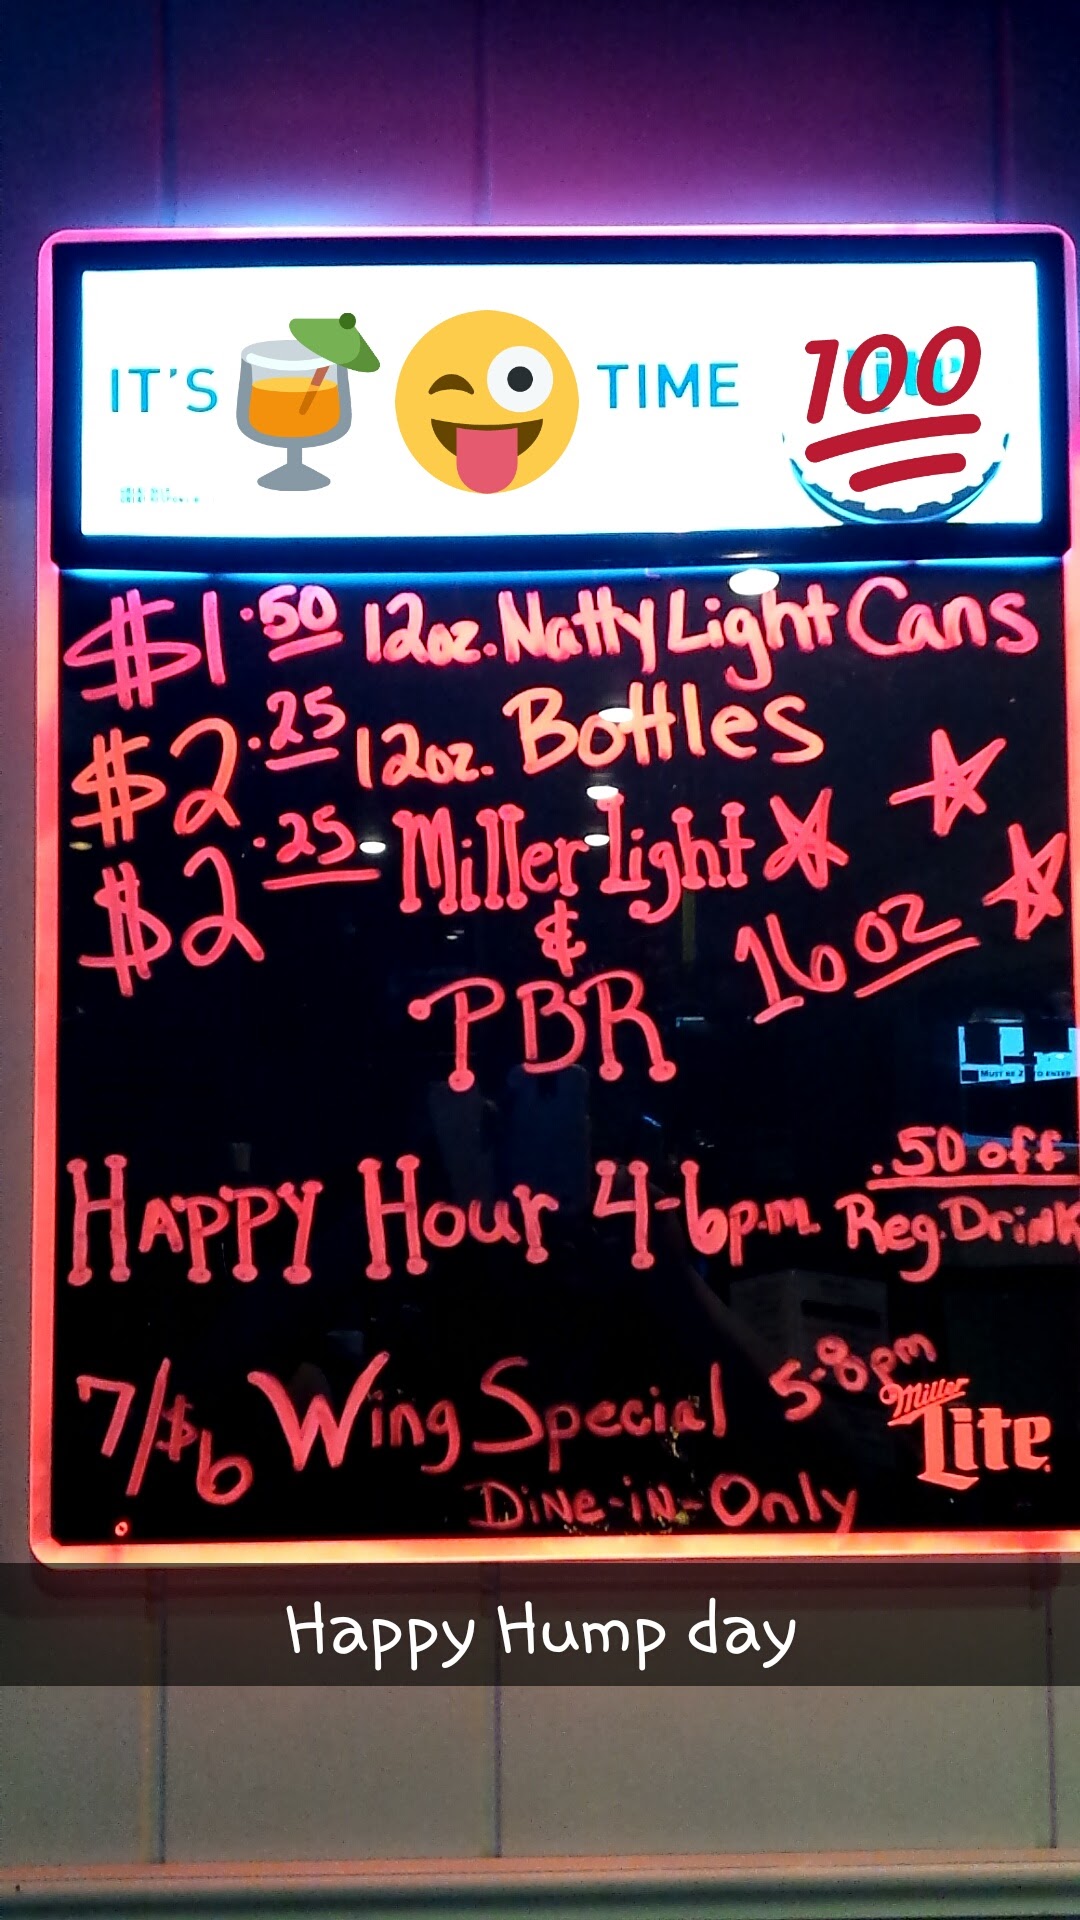 IT'S TIME
100
$1.50 12oz. Natty Light Cans
$2.25 12oz. Bottles
$2.25 Miller Light
&
PBR 16oz
.50 off
Happy Hour 4-6p.m. Reg. Drink
7/$6 Wing Special 5-8pm
Dine-in-Only
Miller
Lite
Happy Hump day